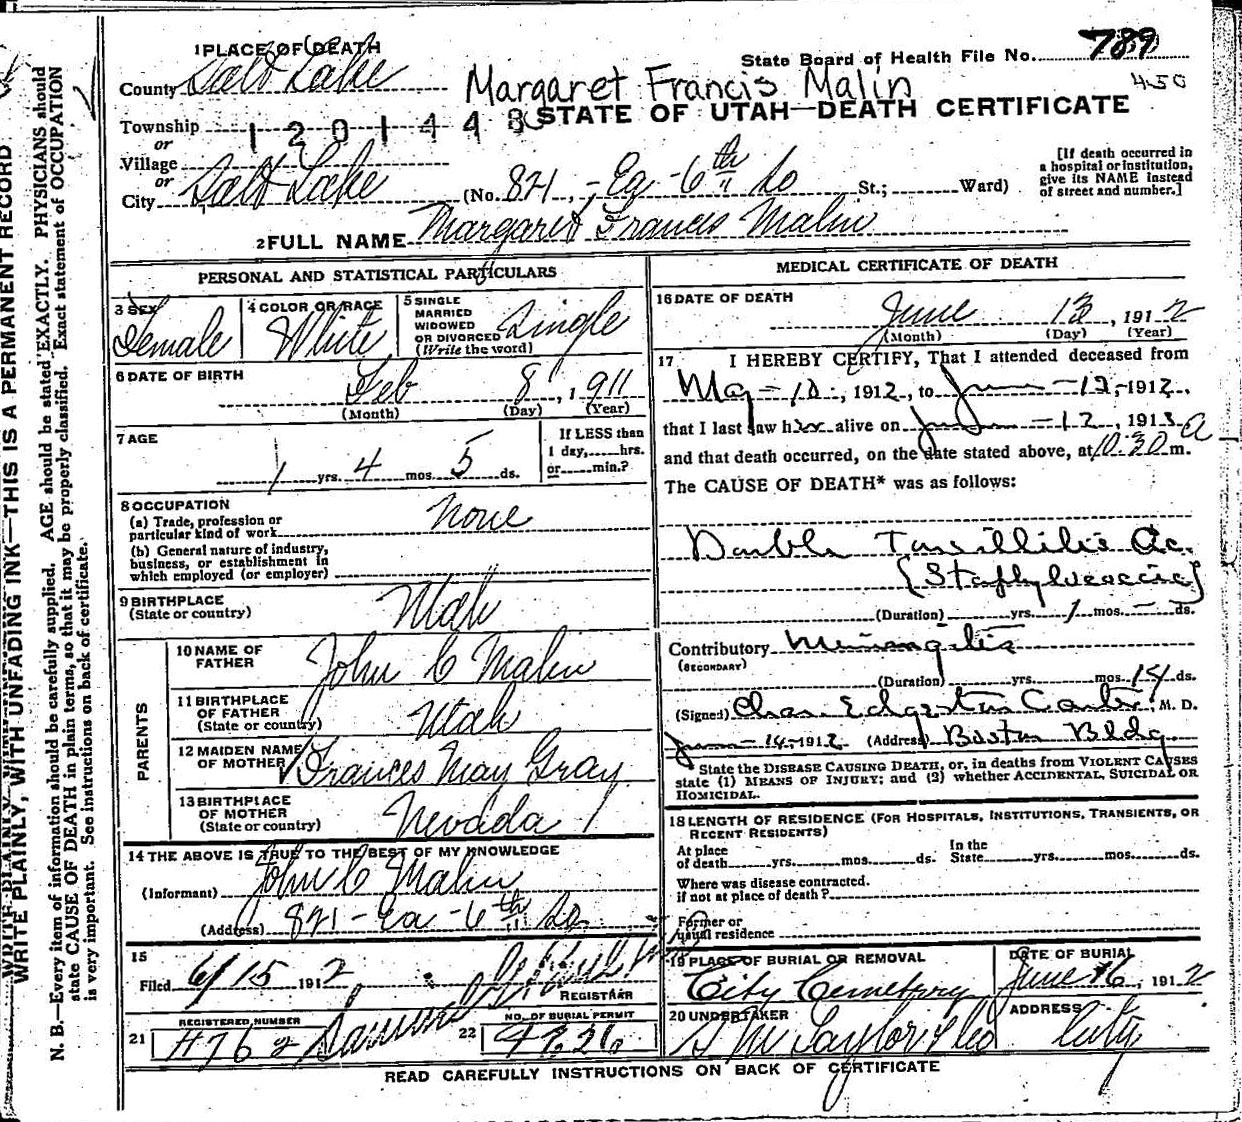 1 PLACE OF DEATH
State Board of Health File No. 789
County Salt Lake
Margaret Francis Malin
450
STATE OF UTAH—DEATH CERTIFICATE
Township
1 2 0 1 4 4 8
or
Village
or
City Salt Lake (No. 821, - Ea - 6th So St.; Ward)
[If death occurred in a hospital or institution, give its NAME instead of street and number.]
2 FULL NAME Margaret Francis Malin
PERSONAL AND STATISTICAL PARTICULARS
3 SEX Female
4 COLOR OR RACE White
5 SINGLE MARRIED WIDOWED OR DIVORCED (Write the word) Single
6 DATE OF BIRTH Feb 8, 1911
(Month) (Day) (Year)
7 AGE
1 yrs. 4 mos. 5 ds.
If LESS than 1 day, hrs. or min.?
8 OCCUPATION
(a) Trade, profession or particular kind of work None
(b) General nature of industry, business, or establishment in which employed (or employer)
9 BIRTHPLACE (State or country) Utah
PARENTS
10 NAME OF FATHER John C Malin
11 BIRTHPLACE OF FATHER (State or country) Utah
12 MAIDEN NAME OF MOTHER Frances May Gray
13 BIRTHPLACE OF MOTHER (State or country) Nevada
14 THE ABOVE IS TRUE TO THE BEST OF MY KNOWLEDGE
(Informant) John C Malin
(Address) 821 - Ea - 6th So
15
Filed 6/15 1912
REGISTRAR
21 REGISTERED NUMBER
22 NO. OF BURIAL PERMIT
MEDICAL CERTIFICATE OF DEATH
16 DATE OF DEATH
June 13, 1912
(Month) (Day) (Year)
17 I HEREBY CERTIFY, That I attended deceased from
May - 10, 1912, to June - 12, - 1912,
that I last saw her alive on June - 12, 191
and that death occurred, on the date stated above, at 10:30 a m.
The CAUSE OF DEATH* was as follows:
Double Tonsillitis Ac.
(Duration) yrs. 1 mos. ds.
Contributory Meningitis
(SECONDARY)
(Duration) yrs. mos. 14 ds.
(Signed) Chas. Edgerton Carter, M. D.
June - 14 - 1912 (Address) Boston Bldg
State the DISEASE CAUSING DEATH, or, in deaths from VIOLENT CAUSES
state (1) MEANS OF INJURY; and (2) whether ACCIDENTAL, SUICIDAL OR
HOMICIDAL.
18 LENGTH OF RESIDENCE (FOR HOSPITALS, INSTITUTIONS, TRANSIENTS, OR
RECENT RESIDENTS)
At place of death yrs. mos. ds. In the State yrs. mos. ds.
Where was disease contracted. if not at place of death?
Former or usual residence
19 PLACE OF BURIAL OR REMOVAL City Cemetery
DATE OF BURIAL June 16, 1912
20 UNDERTAKER S M Taylor & Co
ADDRESS City
READ CAREFULLY INSTRUCTIONS ON BACK OF CERTIFICATE
WRITE PLAINLY, WITH UNFADING INK—THIS IS A PERMANENT RECORD.
N. B.—Every item of information should be carefully supplied. AGE should be stated EXACTLY. PHYSICIANS should
state CAUSE OF DEATH in plain terms, so that it may be properly classified. Exact statement of OCCUPATION
is very important. See instructions on back of certificate.